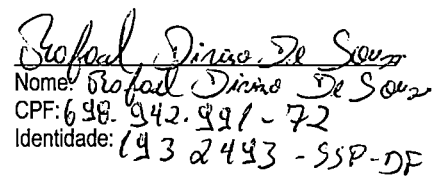 Rafael Diniso De Souza
Nome: Rafael Diniso De Souza
CPF: 698.942.991-72
Identidade: 1932493 - SSP-DF